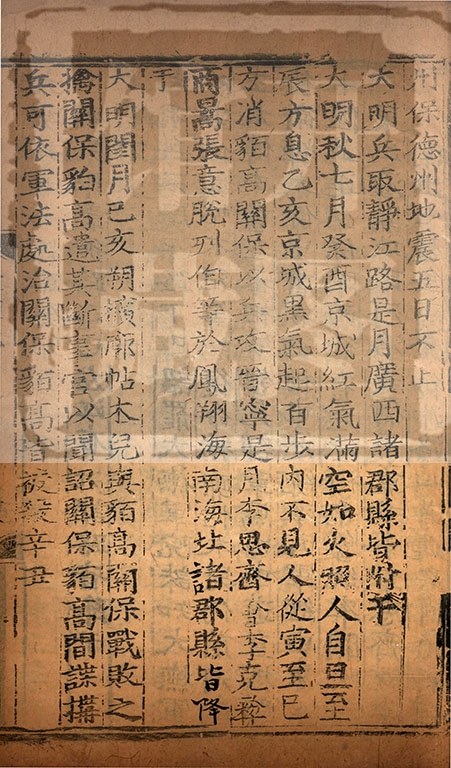 州保德州地震五日不止
大明兵取靜江路是月廣西諸郡縣皆附于
大明秋七月癸酉京城紅氣滿空如火照人自旦至
辰方息乙亥京城黑氣起百步內不見人從寅至巳
方消貊高關保以兵攻晉寧是月李思齊會李克彛
商暠張意脫列伯等於鳳翔海南海北諸郡縣皆降
于
大明閏月己亥朔擴廓帖木兒與貊高關保戰敗之
擒關保貊高遣其斷事官以聞詔關保貊高間諜搆
兵可依軍法處治關保貊高皆被殺辛丑